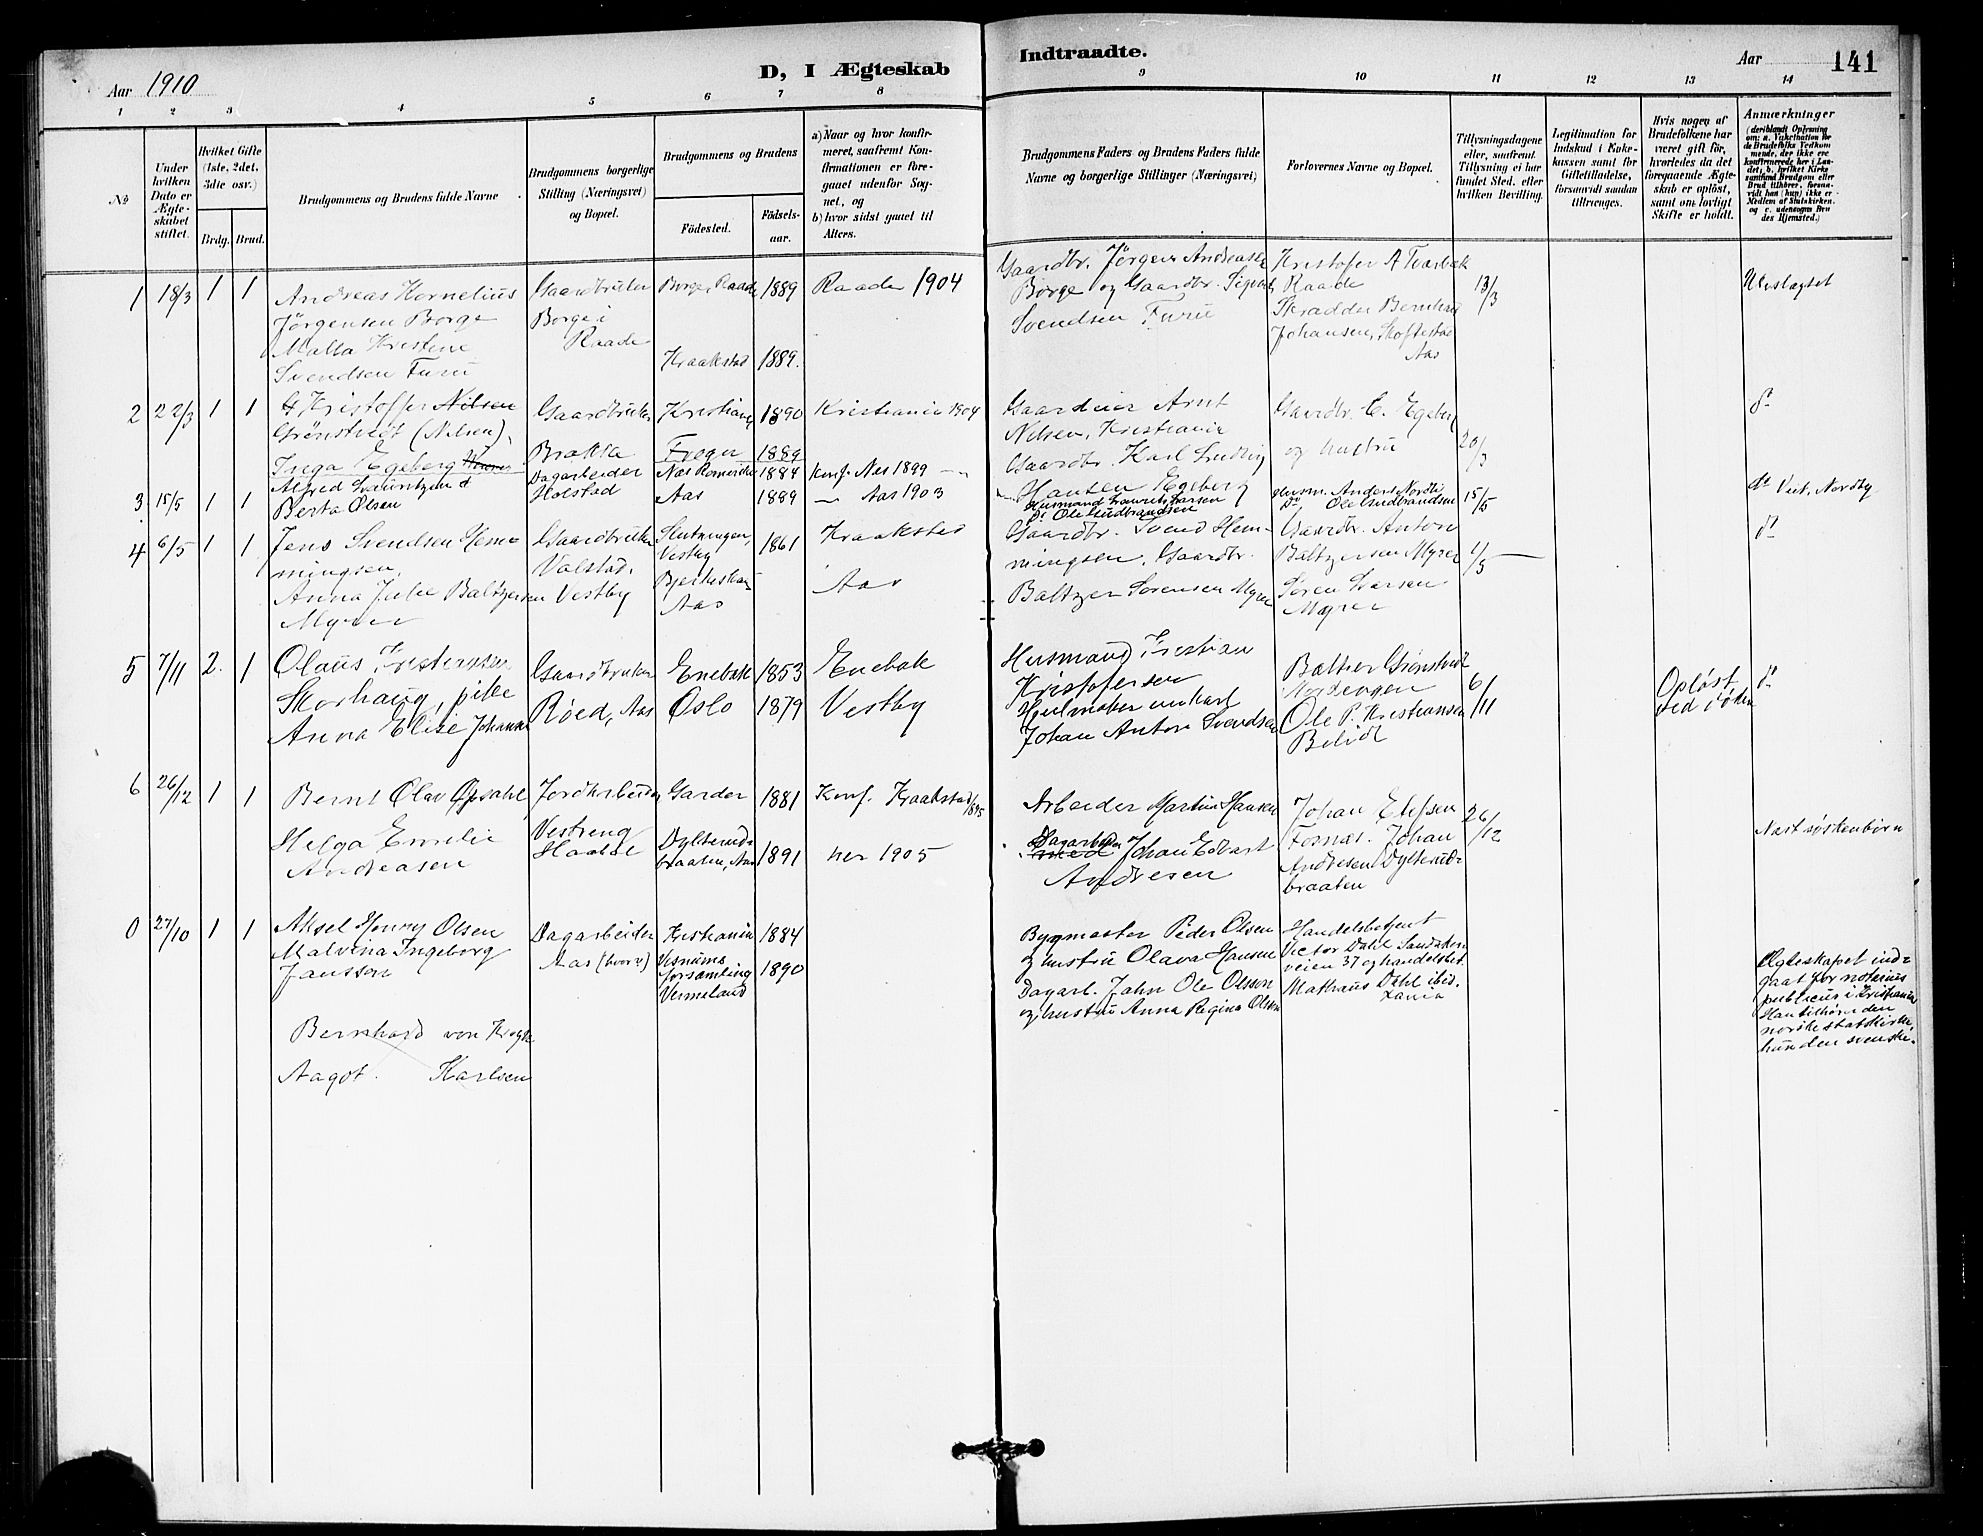 Aar 1910
D, I Ægteskab
Indtraadte.
Aar
141
1 2 3 4 5 6 7 8 9 10 11 12 13 14
No
Under hvilken Dato er Ægteskabet stiftet.
Hvilket Gifte (1ste, 2det, 3die osv.)
Brdg. Brud.
Brudgommens og Brudens fulde Navne
Brudgommens borgerlige Stilling (Næringsvei) og Bopæl.
Brudgommens og Brudens
Födested.
Födselsaar.
a) Naar og hvor konfirmeret, saafremt Konfirmationen er foregaaet udenfor Sognet, og
b) hvor sidst gaaet til Alters.
Brudgommens Faders og Brudens Faders fulde Navne og borgerlige Stillinger (Næringsvei)
Forlovernes Navne og Bopæl.
Tillysningsdagene eller, saafremt Tillysning ei har fundet Sted, efter hvilken Bevilling.
Legitimation for Indskud i Enkekassen samt for Giftetilladelse, forsaavidt saadan tiltrænges.
Hvis nogen af Brudefolkene har været gift för, hvorledes da det foregaaende Ægteskab er oplöst, samt om lovligt Skifte er holdt.
Anmærkninger
1 18/3 1 1
Andreas Kornelius
Jörgensen Borge
Malla Kristine
Svendsen Furu
Gaardbruker
Borge i
Raade
Borge, Raade 1889
Kraakstad 1889.
Raade 1904
Gaardbr. Jörgen Andreas
Borge og Gaardbr.
Svendsen Furu
Kristofer A
Raade
Skrædder Bernhard
Johansen,
Aas
13/3
Ubeslægtet
2 22/3 1 1
Kristoffer Nilsen
Grönstvedt (Nilsen),
Inga Egeberg
Gaardbruker
Brekke
Kristiania 1890
Frogn 1889
Kristiania 1904
Gaardeier Arnt
Nilsen, Kristiania
Gaardbr. Karl Ludvig
Hansen Egeberg
Gaardbr. C. Egeberg
og hustru
20/3
do
3 15/5 1 1
Alfred Lauritzen
Berta Olsen
Dagarbeider
Holstad
Nes Romerike 1884
Aas 1889
Konf. Nes 1899
Aas 1903
Husmand Laurits Larsen
Do Ole Gudbrandsen
Husm. Anders Nordbi
Do, Ole Gudbrandsen
15/5
do Veit, Nordby
4 6/5 1 1
Jens Svendsen Hem-
mingsen,
Anna Julie Baltzersen
Myrer
Gaardbruker
Valstad,
Vestby
Vestby 1861
Aas
Kraakstad
Aas
Gaardbr. Svend Hem-
mingsen. Gaardbr.
Baltzer Sörensen Myrer
Gaardbr. Anton
Baltzersen Myrer
Sören Larsen
Myrer
1/5
do
5 7/11 2. 1
Olaus Kristensen
Skorhaug, pike
Anna Elise Johans
Gaardbruker
Röed, Aas
Enebak 1853
Oslo 1879
Enebak
Vestby
Husmand Kristian
Kristofersen
Hjulmaker
Johan Anton Svendsen
Nordengen
Ole P. Kristiansen
6/11
Oplöst
ved döden
do
6 26/12 1 1
Bernt Olav Opsahl
Helga Emelie
Andreasen
Jordarbeider
Vestreng
Haaböl
Garder 1881
Dylterud-
braaten, Aas 1891
Konf. Kraakstad 1895
her 1905
Arbeider Martin Hansen
Dagarbeider
Johan Edvart
Andresen
Johan Elefsen
Fosnæs. Johan
Andresen Dylterud-
braaten
26/12
Næst söskenbörn
0 27/10 1 1
Aksel Henry Olsen
Malvina Ingeborg
Jansson
Dagarbeider
Aas (hvor?)
Kristiania 1884
Visnums
forsamling 1890
Vermeland
Bygmester Peder Olsen
og hustru Olava Hansen
Dagarb. John Ole Olsson
og hustru Anna Regina Olsson
Handelsbetjent
Victor Dahl Sandaker-
veien 37 og handelsbet.
Mathæus Dahl ibid.
Ægteskapet ind-
gaat for notarius
publicus i Kristiania
Han tilhörer den
norske statskirke,
hun den svenske.
Bernhard von Krogh
Aagot Karlsen